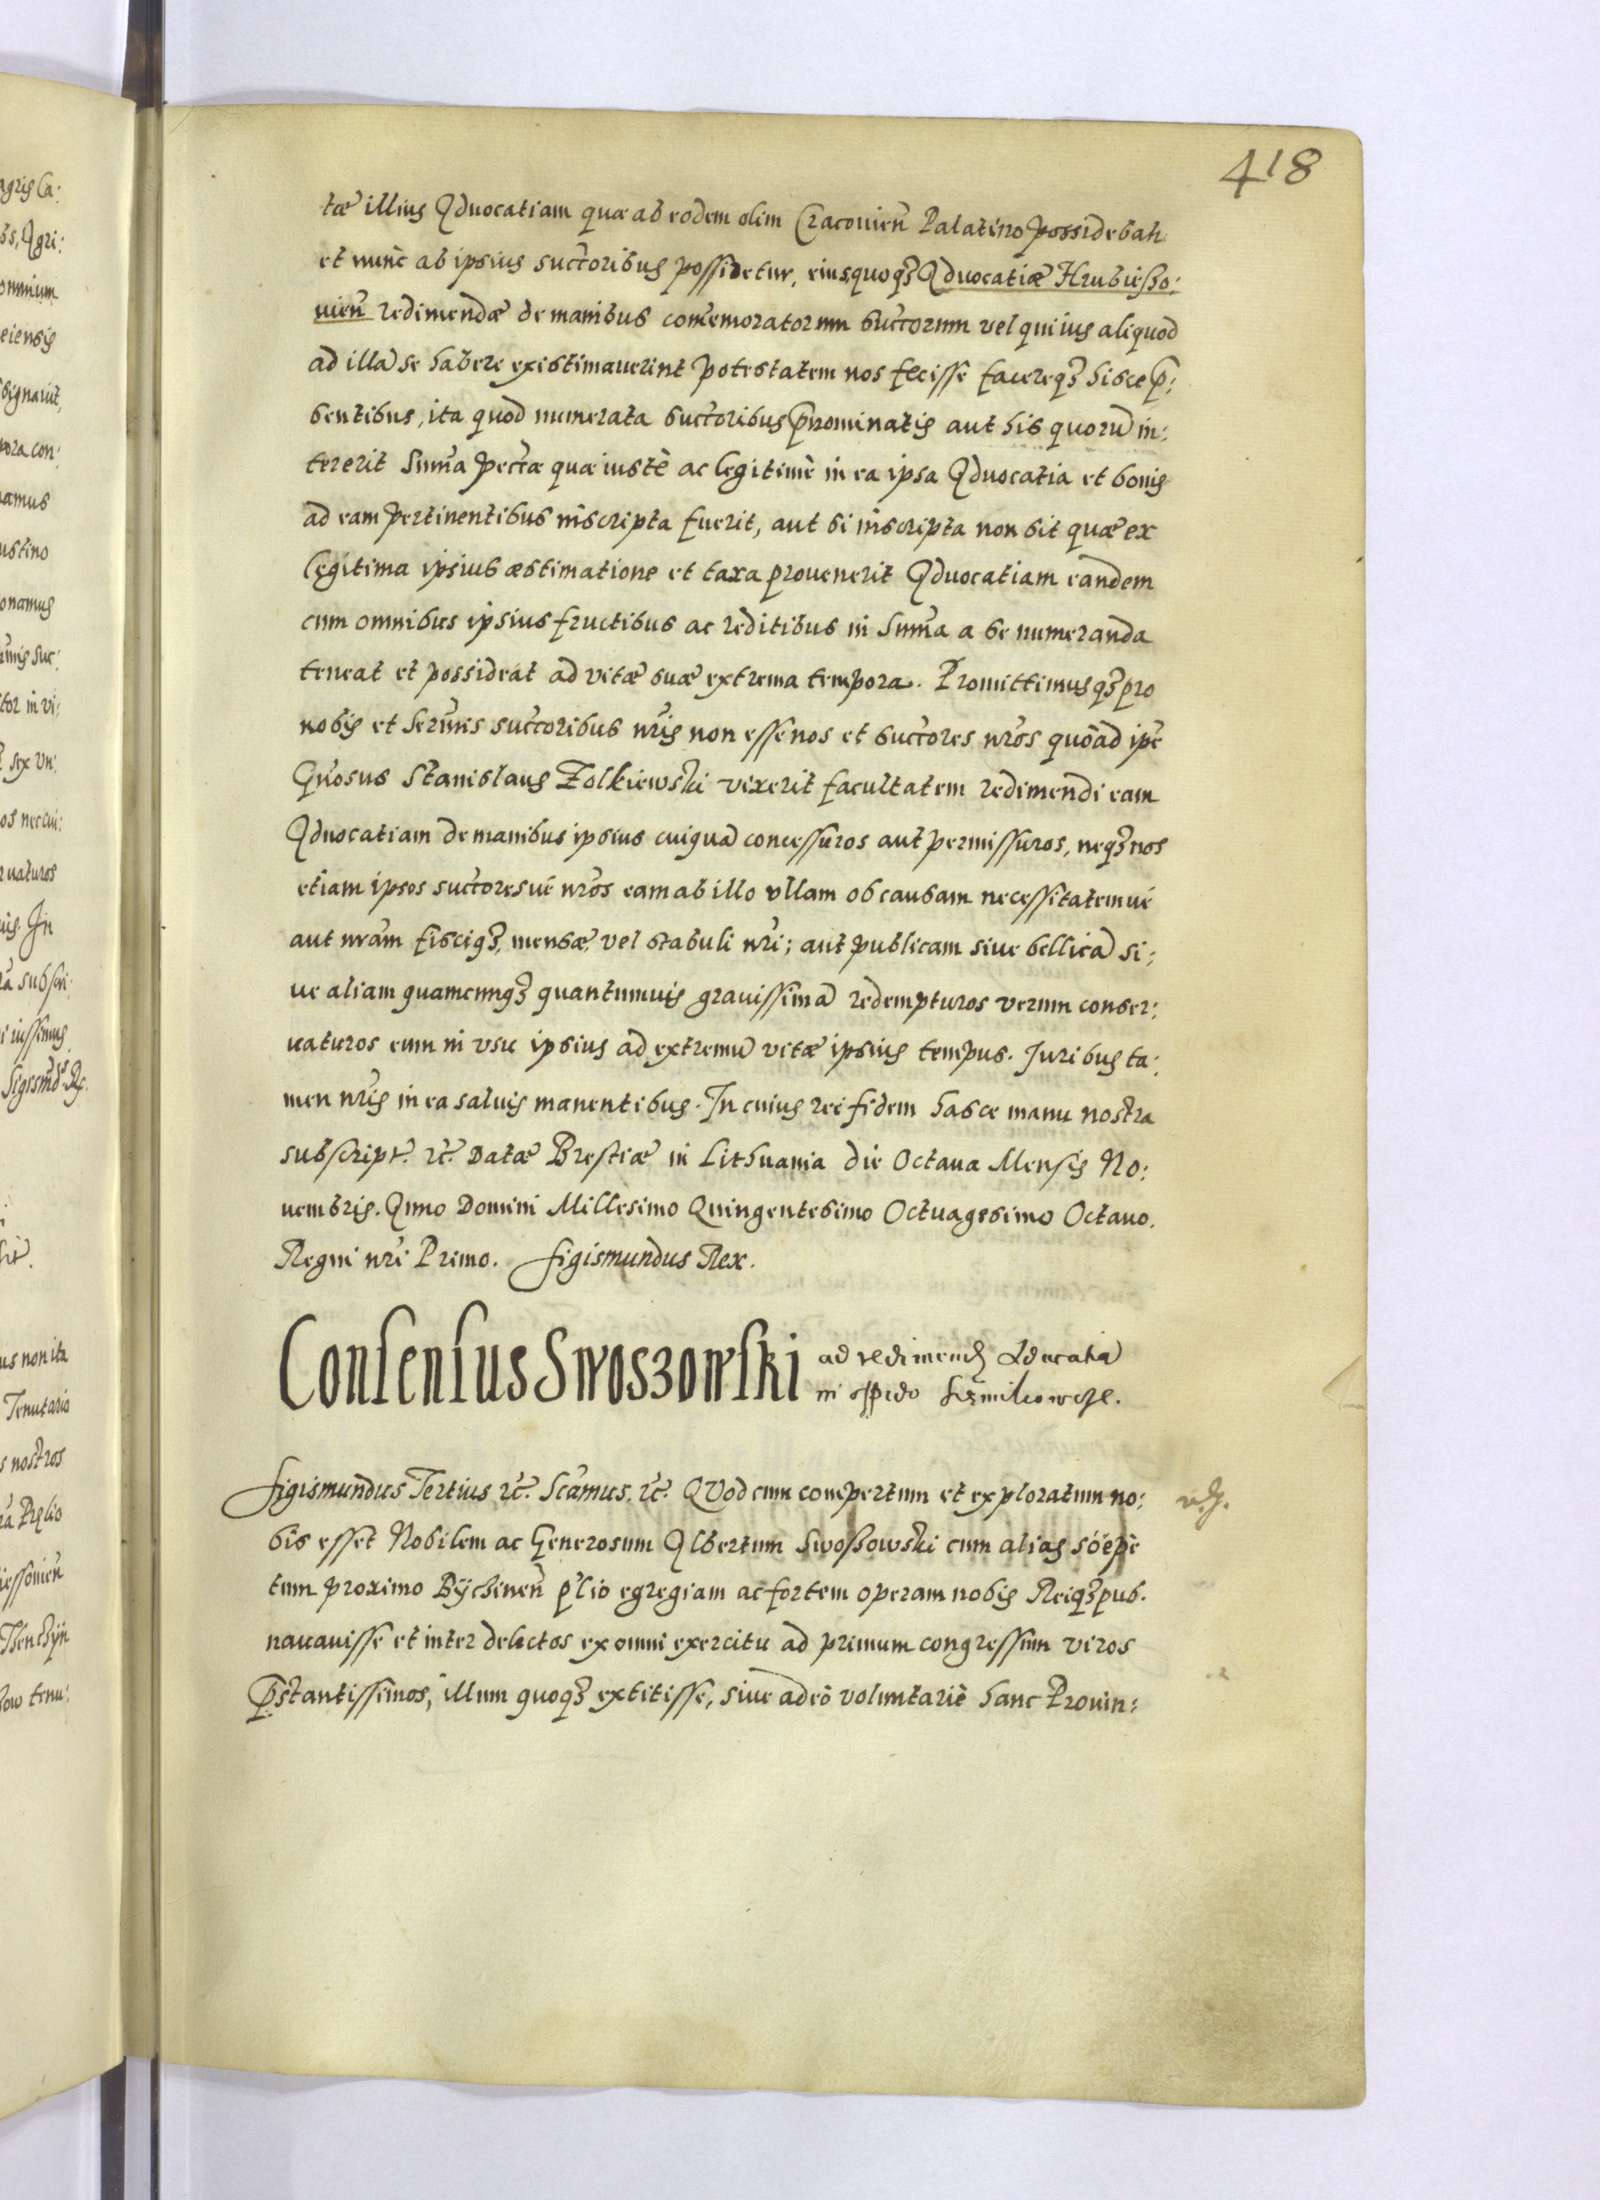 418
tæ illius Aduocatiam quæ ab eodem olim Cracouień Palatino possidebat
et nunc ab ipsius succ̃oribus possidetur, eius quoqꝫ Aduocatiæ Hrubießo:
uień redimendæ de manibus com̃emoratorum succ̃orum vel qui ius aliquod
ad illã se habere existimauerint potestatem nos fecisse facereqꝫ hisce p̃:
sentibus, ita quod numerata succ̃oribus p̃nominatis aut his quorũ in:
tererit Sum̃a pec̃æ quæ iustè ac legitimè in ea ipsa Aduocatia et bonis
ad eam pertinentibus inscripta fuerit, aut si inscripta non sit quæ ex
legitima ipsius æstimatione et taxa prouenerit Aduocatiam eandem
cum omnibus ipsius fructibus ac reditibus in Sum̃a a se numeranda
teneat et possideat ad vitæ suæ extrema tempora. Promittimusqꝫ pro
nobis et Serm̃is succ̃oribus nr̃is non esse nos et succ̃ores nr̃os quoad ip̃e
Gñosus Stanislaus Zolkiewski vixerit facultatem redimendi eam
Aduocatiam de manibus ipsius cuiquã concessuros aut permissuros, neqꝫ nos
etiam ipsos succ̃oresuè nr̃os eam ab illo vllam ob causam necessitatemuè
aut nr̃am fisciqꝫ, mensæ, vel stabuli nr̃i; aut publicam siue bellicã si:
ue aliam quamcunqꝫ quantumuis grauissimã redempturos verum conser:
uaturos eum in vsu ipsius ad extremũ vitæ ipsius tempus. Juribus ta:
men nr̃is in ea saluis manentibus. In cuius rei fidem hasce manu nostra
subscript. ꝛc̃. Datæ Brestiæ in Lithuania die Octaua Mensis No:
uembris. Anno Domini Millesimo Quingentesimo Octuagesimo Octauo.
Regni nr̃i Primo. Sigismundus Rex.
Consensus Swoszowski ad redimend Aduocatiã
in oppido
Sigismundus Tertius ꝛc̃. Scamus. ꝛc̃. Quod cum compertum et exploratum no:
bis esset Nobilem ac Generosum Albertum Swoßowski cum alias sæpè
tum proximo Bÿchineń p̃lio egregiam ac fortem operam nobis Reiqꝫ pub.
nauauisse et inter delectos ex omni exercitu ad primum congressum viros
p̃stantissimos, illum quoqꝫ extitisse, siue adeò voluntariè hanc Prouin: